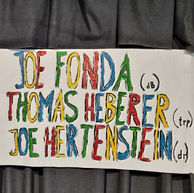 JOE FONDA (dB)
THOMAS HEBERER (trp)
JOE HERTENSTEIN (ds)